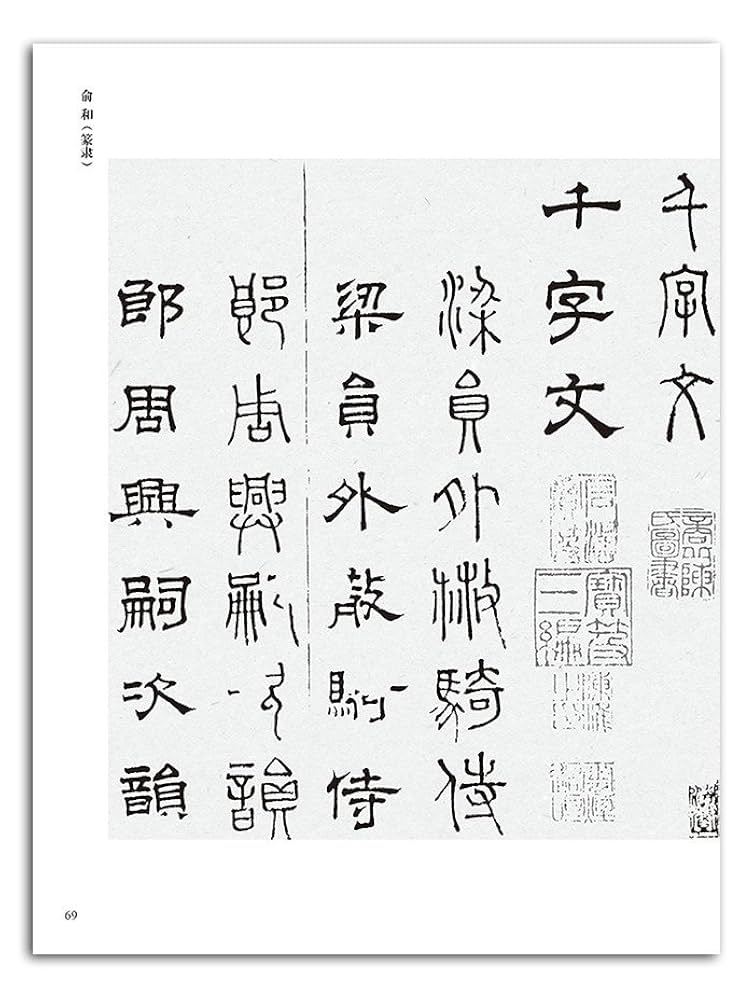 俞和（篆隶）
千字文
千字文
梁員外散騎侍
梁員外散騎侍
郎周興嗣次韻
郎周興嗣次韻
寶笈三編
69